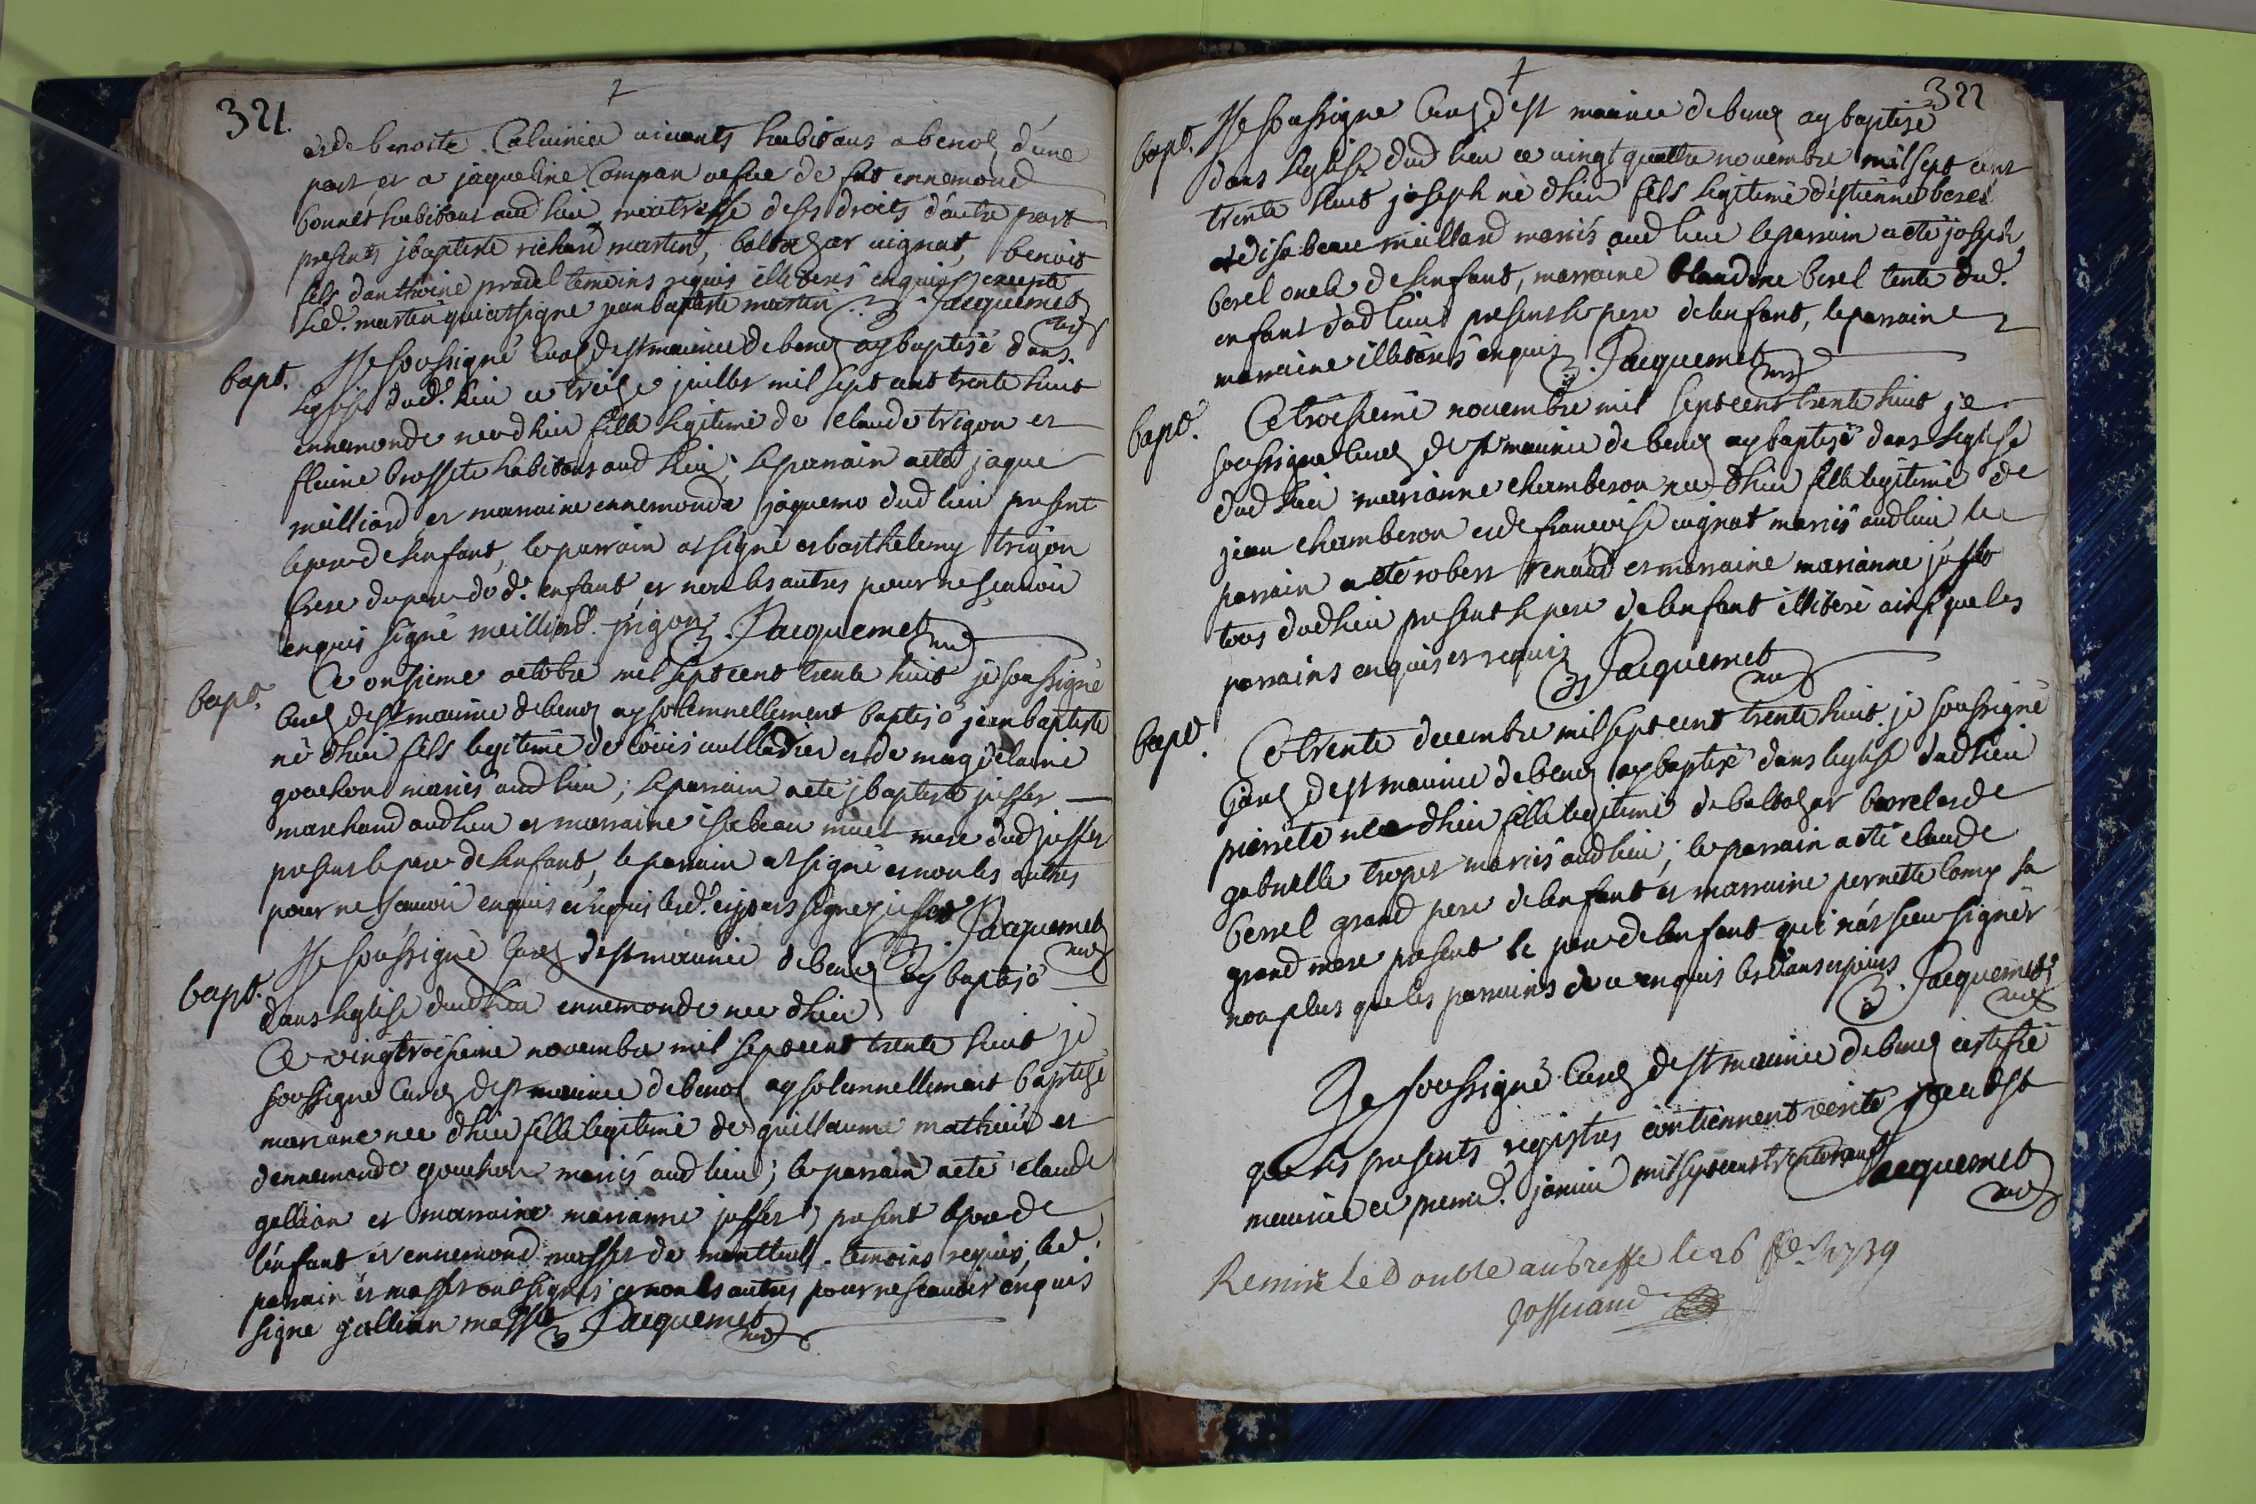 321.
et de benoite Caluinier uiuants habitans a beno d'une
part et a jaqueline Compan uefue de fut ennemond
bonnet habitans aud lieu, maitresse de ses droits d'autre part
presents jbaptiste richard martin, baltazar uignat, benoit
fils d'anthoine pradel temoins requis illiterés enquis excepté
led. martin qui at signé jean baptiste martin Jacquemet
bapt. Je soussigné Curé de st maurice de beno ay baptisé dans
l'eglise dud. lieu ce treize juillet mil sept cent trente huit
ennemonde née d'hier fille legitime de claude trigon et
fleurie brossete habitans aud lieu; le parrain a eté jaque
meilliard et marraine ennemonde jaquemo dud lieu present
le pere de l'enfant, le parrain at signé et barthelemy trigon
frere du pere dud. enfant et non les autres pour ne sçauoir
enquis signé meilliard. trigon. Jacquemet
bapt. Ce onsieme octobre mil sept cent trente huit je soussigné
Curé de st maurice de beno ay solemnellement baptisé jean baptiste
né d'hier fils legitime de loüis uulladier et de magdelaine
gouchon mariés aud lieu; le parrain a eté jbaptiste josser
marchand aud lieu et marraine isabeau muet mere dud josser
present le pere de l'enfant, le parrain at signé et non les autres
pour ne sçauoir enquis et requis led. et jours signé josser Jacquemet
bapt. Je soussigné Curé de st maurice de beno ay baptisé
dans l'eglise dud lieu ennemonde née d'hier
Ce vingtroisieme novembre mil sept cent trente huit je
soussigné Curé de st maurice de beno ay solennellement baptisé
mariane née d'hier fille legitime de guillaume mathieu et
d'ennemonde gouchon mariés aud lieu; le parrain a eté claude
gallian et marraine marianne josser, present le pere de
l'enfant et ennemond masser de montluel temoins requis, led.
parrain et masser ont signés et non les autres pour ne scauoir enquis
signé gallian masse Jacquemet
322
bapt. Je soussigné Curé de st maurice de beno ay baptisé
dans l'eglise dud lieu ce vingt quatre novembre mil sept cent
trente huit joseph né d'hier fils legitime d'estienne berel
et d'isabeau meilland mariés aud lieu le parrain a eté joseph
berel oncle de l'enfant, marraine blandine berel tente dud.
enfant dud lieu present le pere de l'enfant, le parrain et
marraine illiterés enquis Jacquemet
bapt. Ce troisieme novembre mil sept cent trente huit je
soussigné Curé de st maurice de beno ay baptisé dans l'eglise
dud lieu marianne chamberon née d'hier fille legitime de
jean chamberon et de francoise uignat mariés aud lieu le
parrain a eté robert renaud et marraine marianne josser
tous dud lieu present le pere de l'enfant illiteré ainsi que les
parrains enquis et requis Jacquemet
bapt. Ce trente decembre mil sept cent trente huit je soussigné
Curé de st maurice de beno ay baptisé dans l'eglise dud lieu
pierrete née d'hier fille legitime de baltazar berrel et de
gabrielle troyet mariés aud lieu; le parrain a eté claude
berrel grand pere de l'enfant et marraine pernette Comp sa
grand mere present le pere de l'enfant qui n'at sceu signer
non plus que les parrains de ce enquis les d'ans et jours Jacquemet
Je soussigné Curé de st maurice de beno certifie
que les presents registres contiennent verité fait a st
maurice ce premier. janvier mil sept cent trente neuf Jacquemet
Remire le Double au Greffe le 26 fer. 1739
Josserand